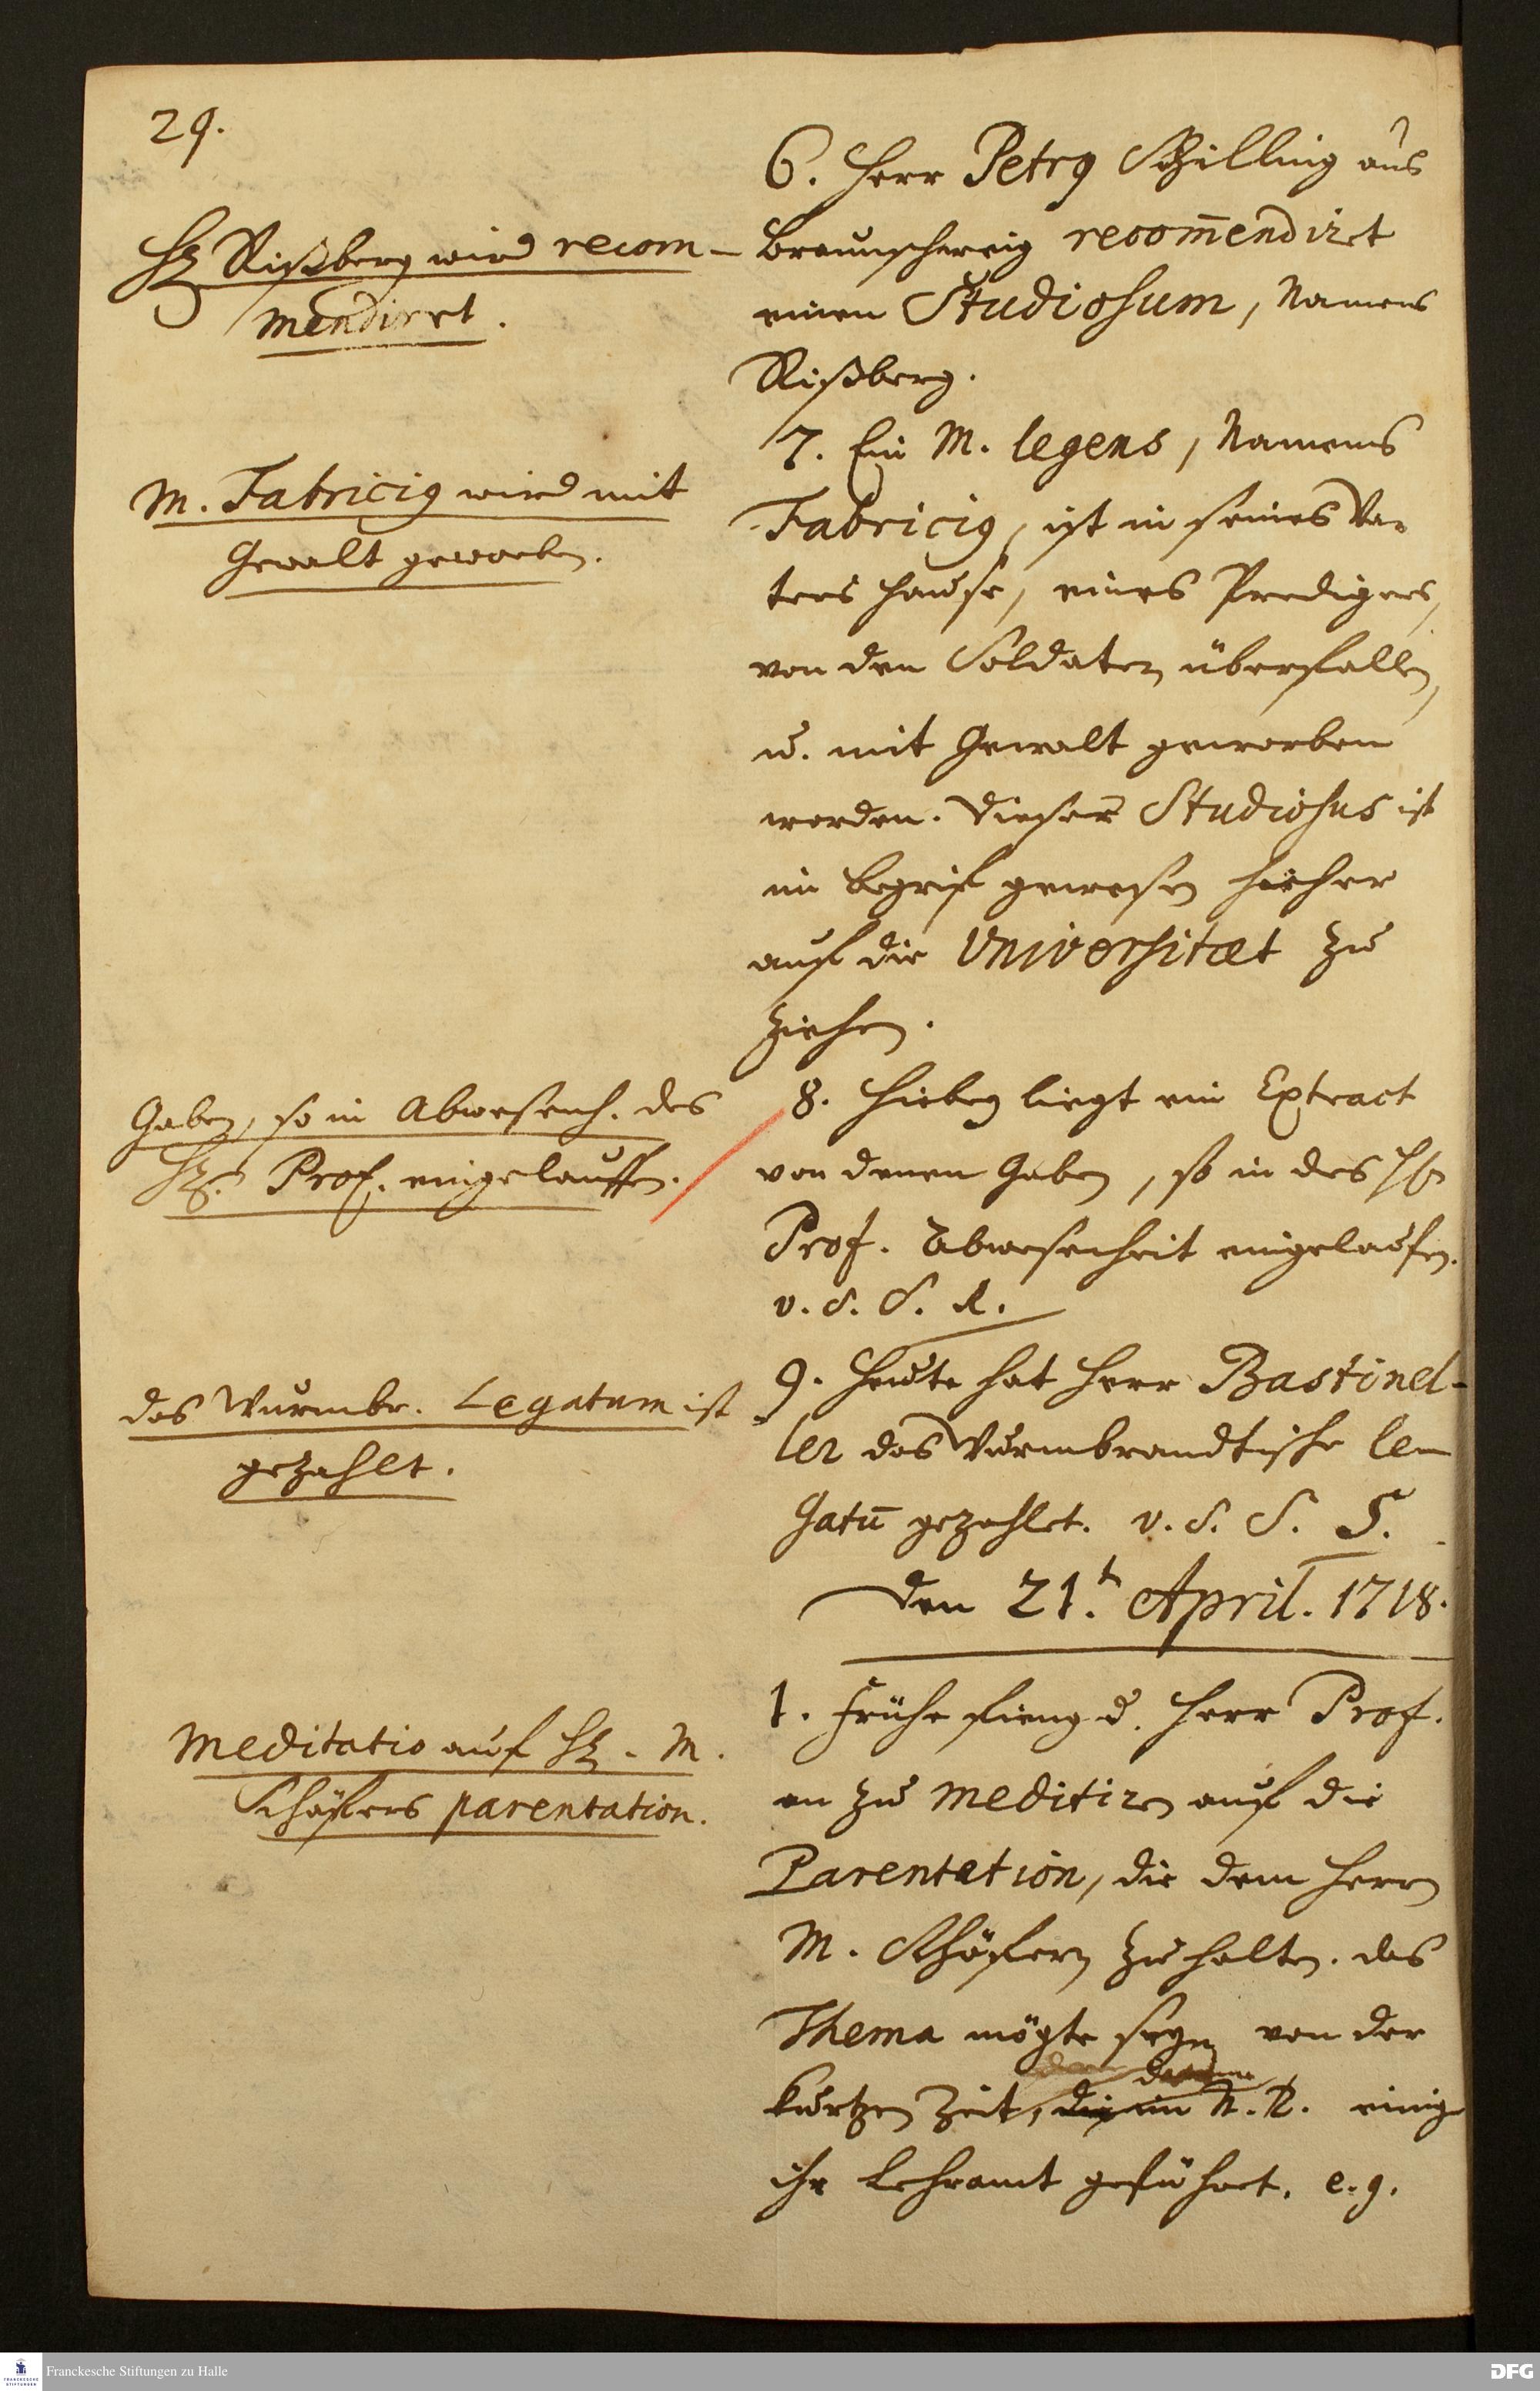 29.
H. Rißberg wird recom-
mendiret.
M. Fabricius wird mit
Gewalt geworben.
Gaben, so in Abwesenh. des
H. Prof. eingelauffen.
das Wurmbr. Legatum ist
gezahlt.
Meditatio auf H. M.
Schäfers parentation.
6. Herr Petrus Schilling aus
Braunschweig recom̄endiret
einen Studiosum, Namens
Rißberg.
7. Ein M. legens, Namens
Fabricius, ist in seines Va-
ters Hause, eines Predigers,
von den Soldaten überfallen,
u. mit Gewalt geworben
worden. Dieser Studiosus ist
im begrif gewesen hieher
auf die Universitæt zu
ziehen.
8. Hiebey liegt ein Extract
von denen Gaben, so in des H.
Prof. Abwesenheit eingelaufen.
v. S. S. R.
9. Heute hat Herr Bastinel-
ler das Wurmbrandtische le-
gatū gezahlet. v. S. S. S.
Den 21.t April. 1718.
1. Frühe fieng d. Herr Prof.
an zu meditiren auf die
Parentation, die dem Herrn
M. Schäfern zu halten. das
Thema mögte seyn von der
kurtzen Zeit, die im N. T. einige
ihr Lehramt geführet. e.g.
Franckesche Stiftungen zu Halle
DFG